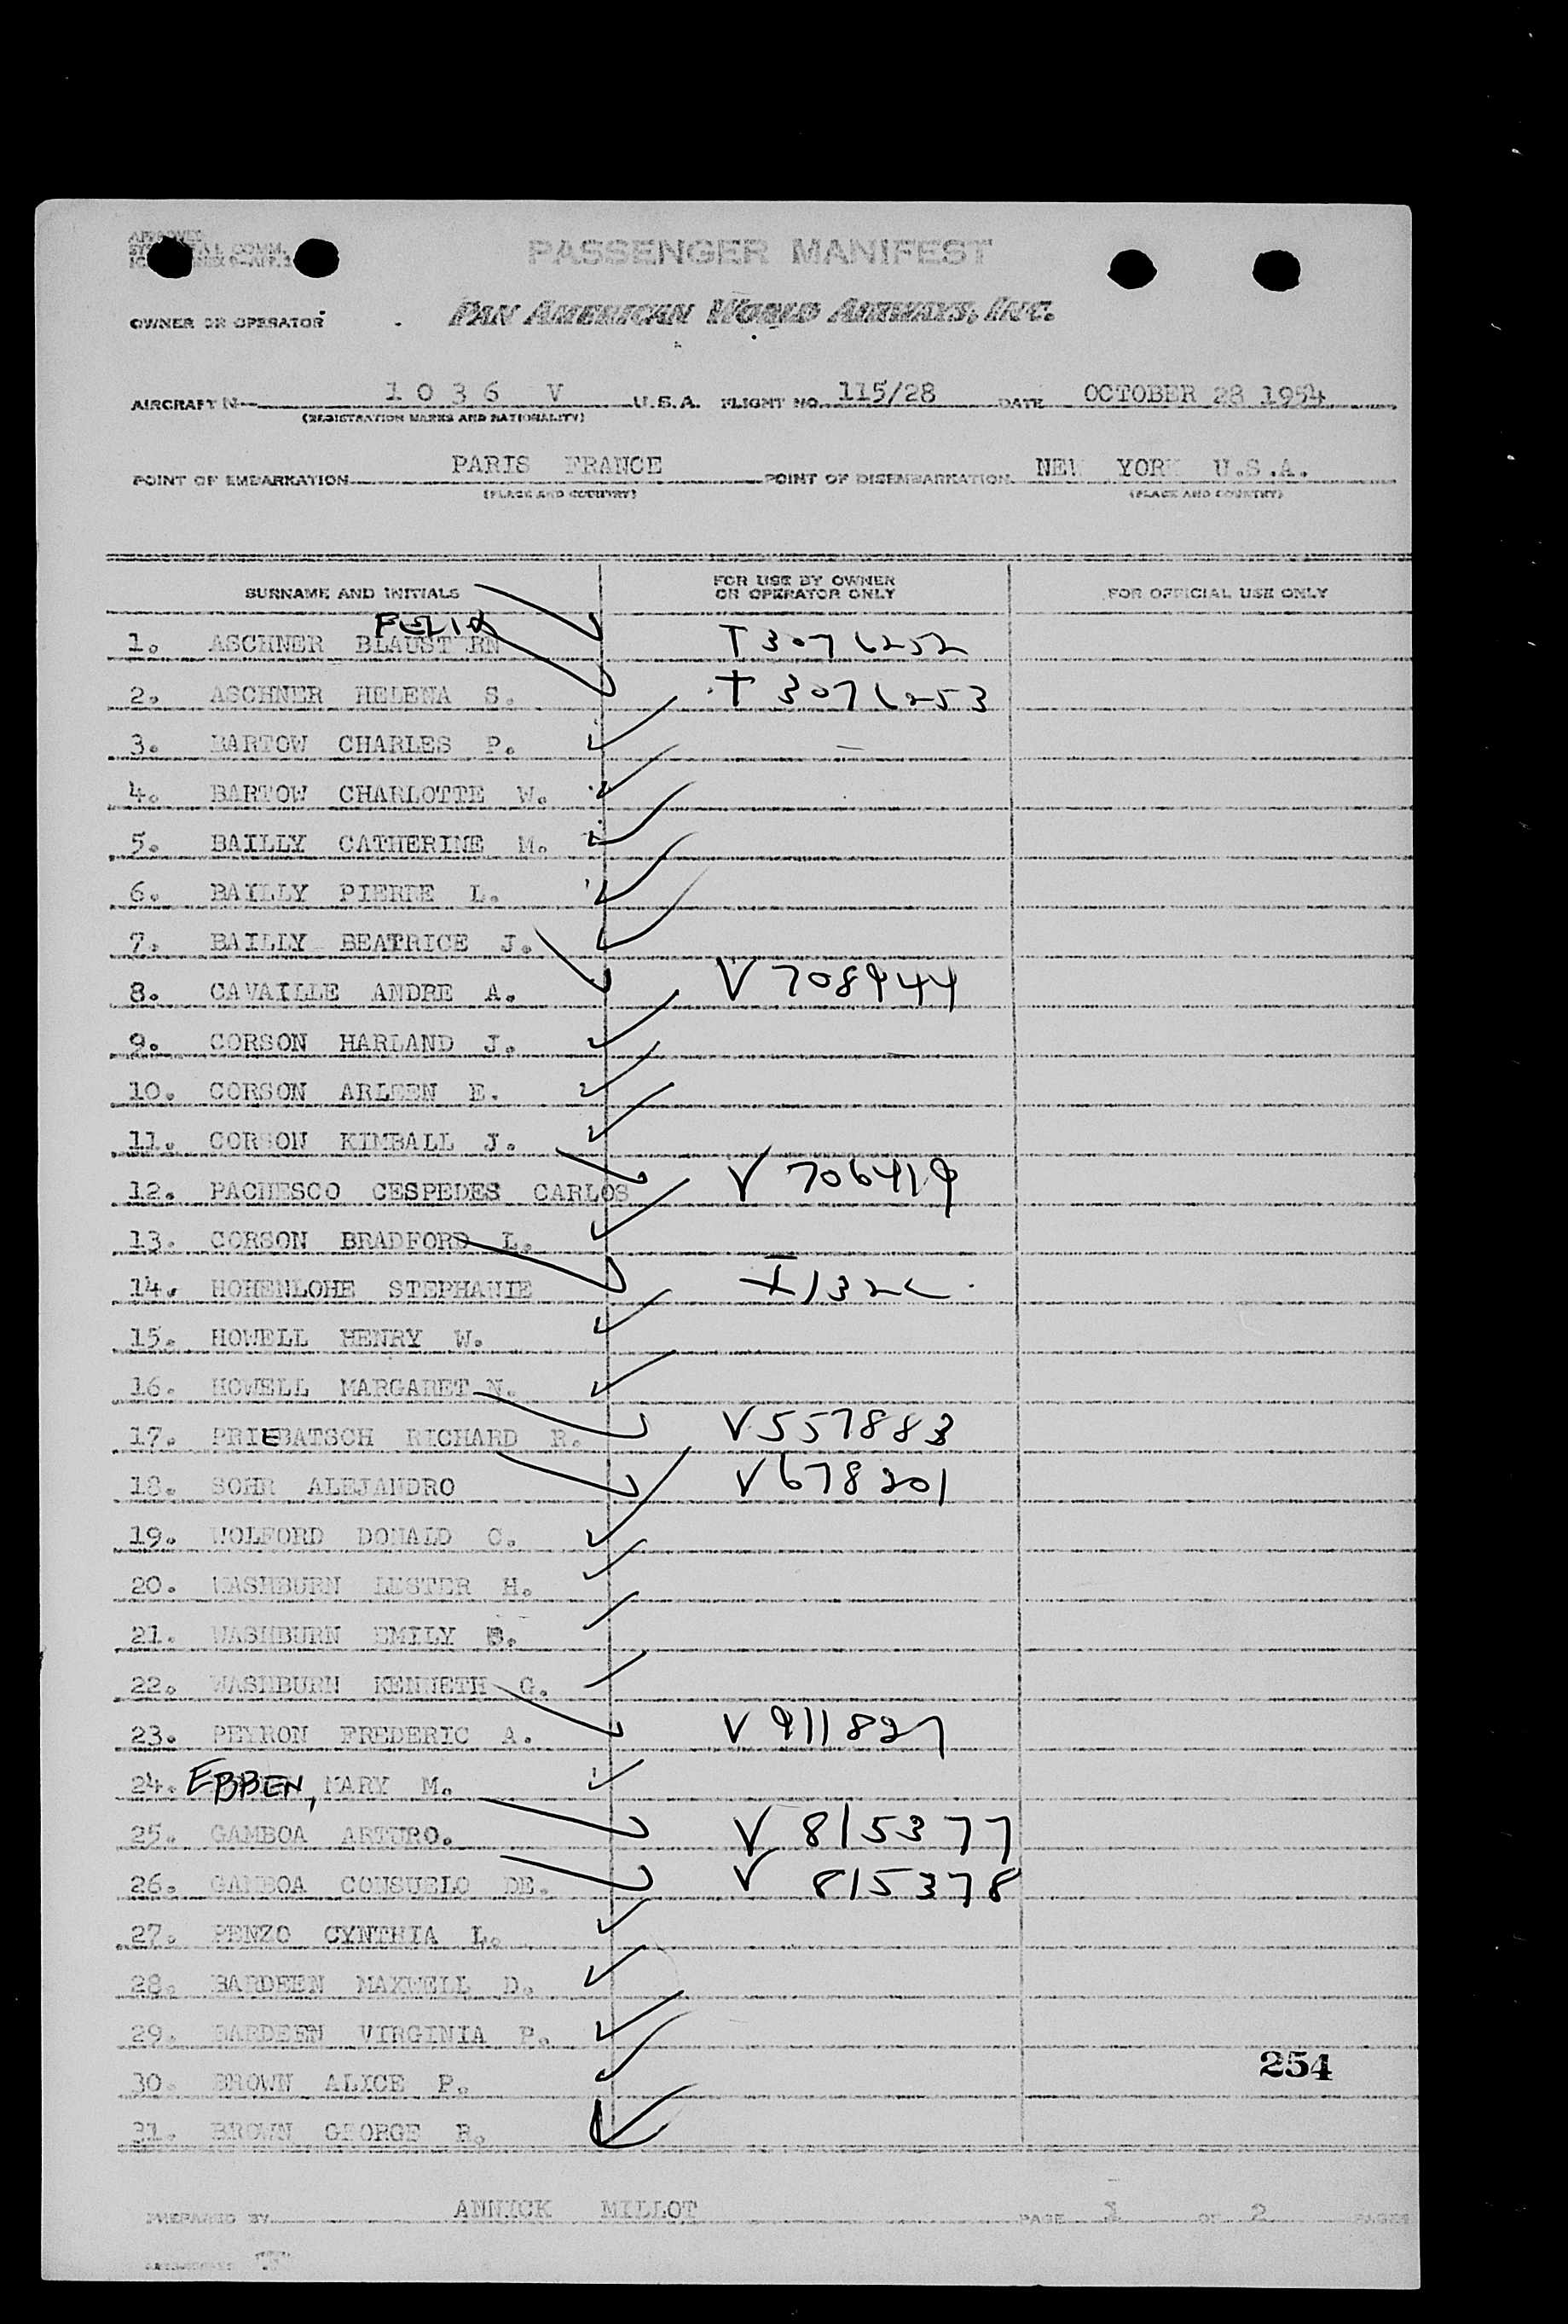 APPROVED
PASSENGER MANIFEST
OWNER OR OPERATOR PAN AMERICAN WORLD AIRWAYS, INC.
AIRCRAFT N 1 0 3 6 V U.S.A. FLIGHT NO. 115/28 DATE OCTOBER 28 1954
(REGISTRATION MARKS AND NATIONALITY)
POINT OF EMBARKATION PARIS FRANCE POINT OF DISEMBARKATION NEW YORK U.S.A.
(PLACE AND COUNTRY) (PLACE AND COUNTRY)
SURNAME AND INITIALS FOR USE BY OWNER OR OPERATOR ONLY FOR OFFICIAL USE ONLY
FELIX
1. ASCHNER BLAUSTERN T 3076252
2. ASCHNER HELENA S. T 3076253
3. BARTOW CHARLES P.
4. BARTOW CHARLOTTE W.
5. BAILLY CATHERINE M.
6. BAILLY PIERRE L.
7. BAILLY BEATRICE J.
8. CAVAILLE ANDRE A. V 708944
9. CORSON HARLAND J.
10. CORSON ARLEEN E.
11. CORSON KIMBALL J.
12. PACHESCO CESPEDES CARLOS V 706419
13. CORSON BRADFORD L.
14. HOHENLOHE STEPHANIE
15. HOWELL HENRY W.
16. HOWELL MARGARET N.
17. PRIEBATSCH RICHARD R. V 557883
18. SOHR ALEJANDRO V 678201
19. WOLFORD DONALD C.
20. WASHBURN LESTER H.
21. WASHBURN EMILY B.
22. WASHBURN KENNETH G.
23. PEYRON FREDERIC A. V 911827
24. EBBEN, MARY M.
25. GAMBOA ARTURO. V 815377
26. GAMBOA CONSUELO DE. V 815378
27. PENZO CYNTHIA L.
28. BARDEEN MAXWELL D.
29. BARDEEN VIRGINIA P.
30. BROWN ALICE P.
31. BROWN GEORGE R.
254
PREPARED BY ANNICK MILLOT PAGE 1 OF 2 PAGES